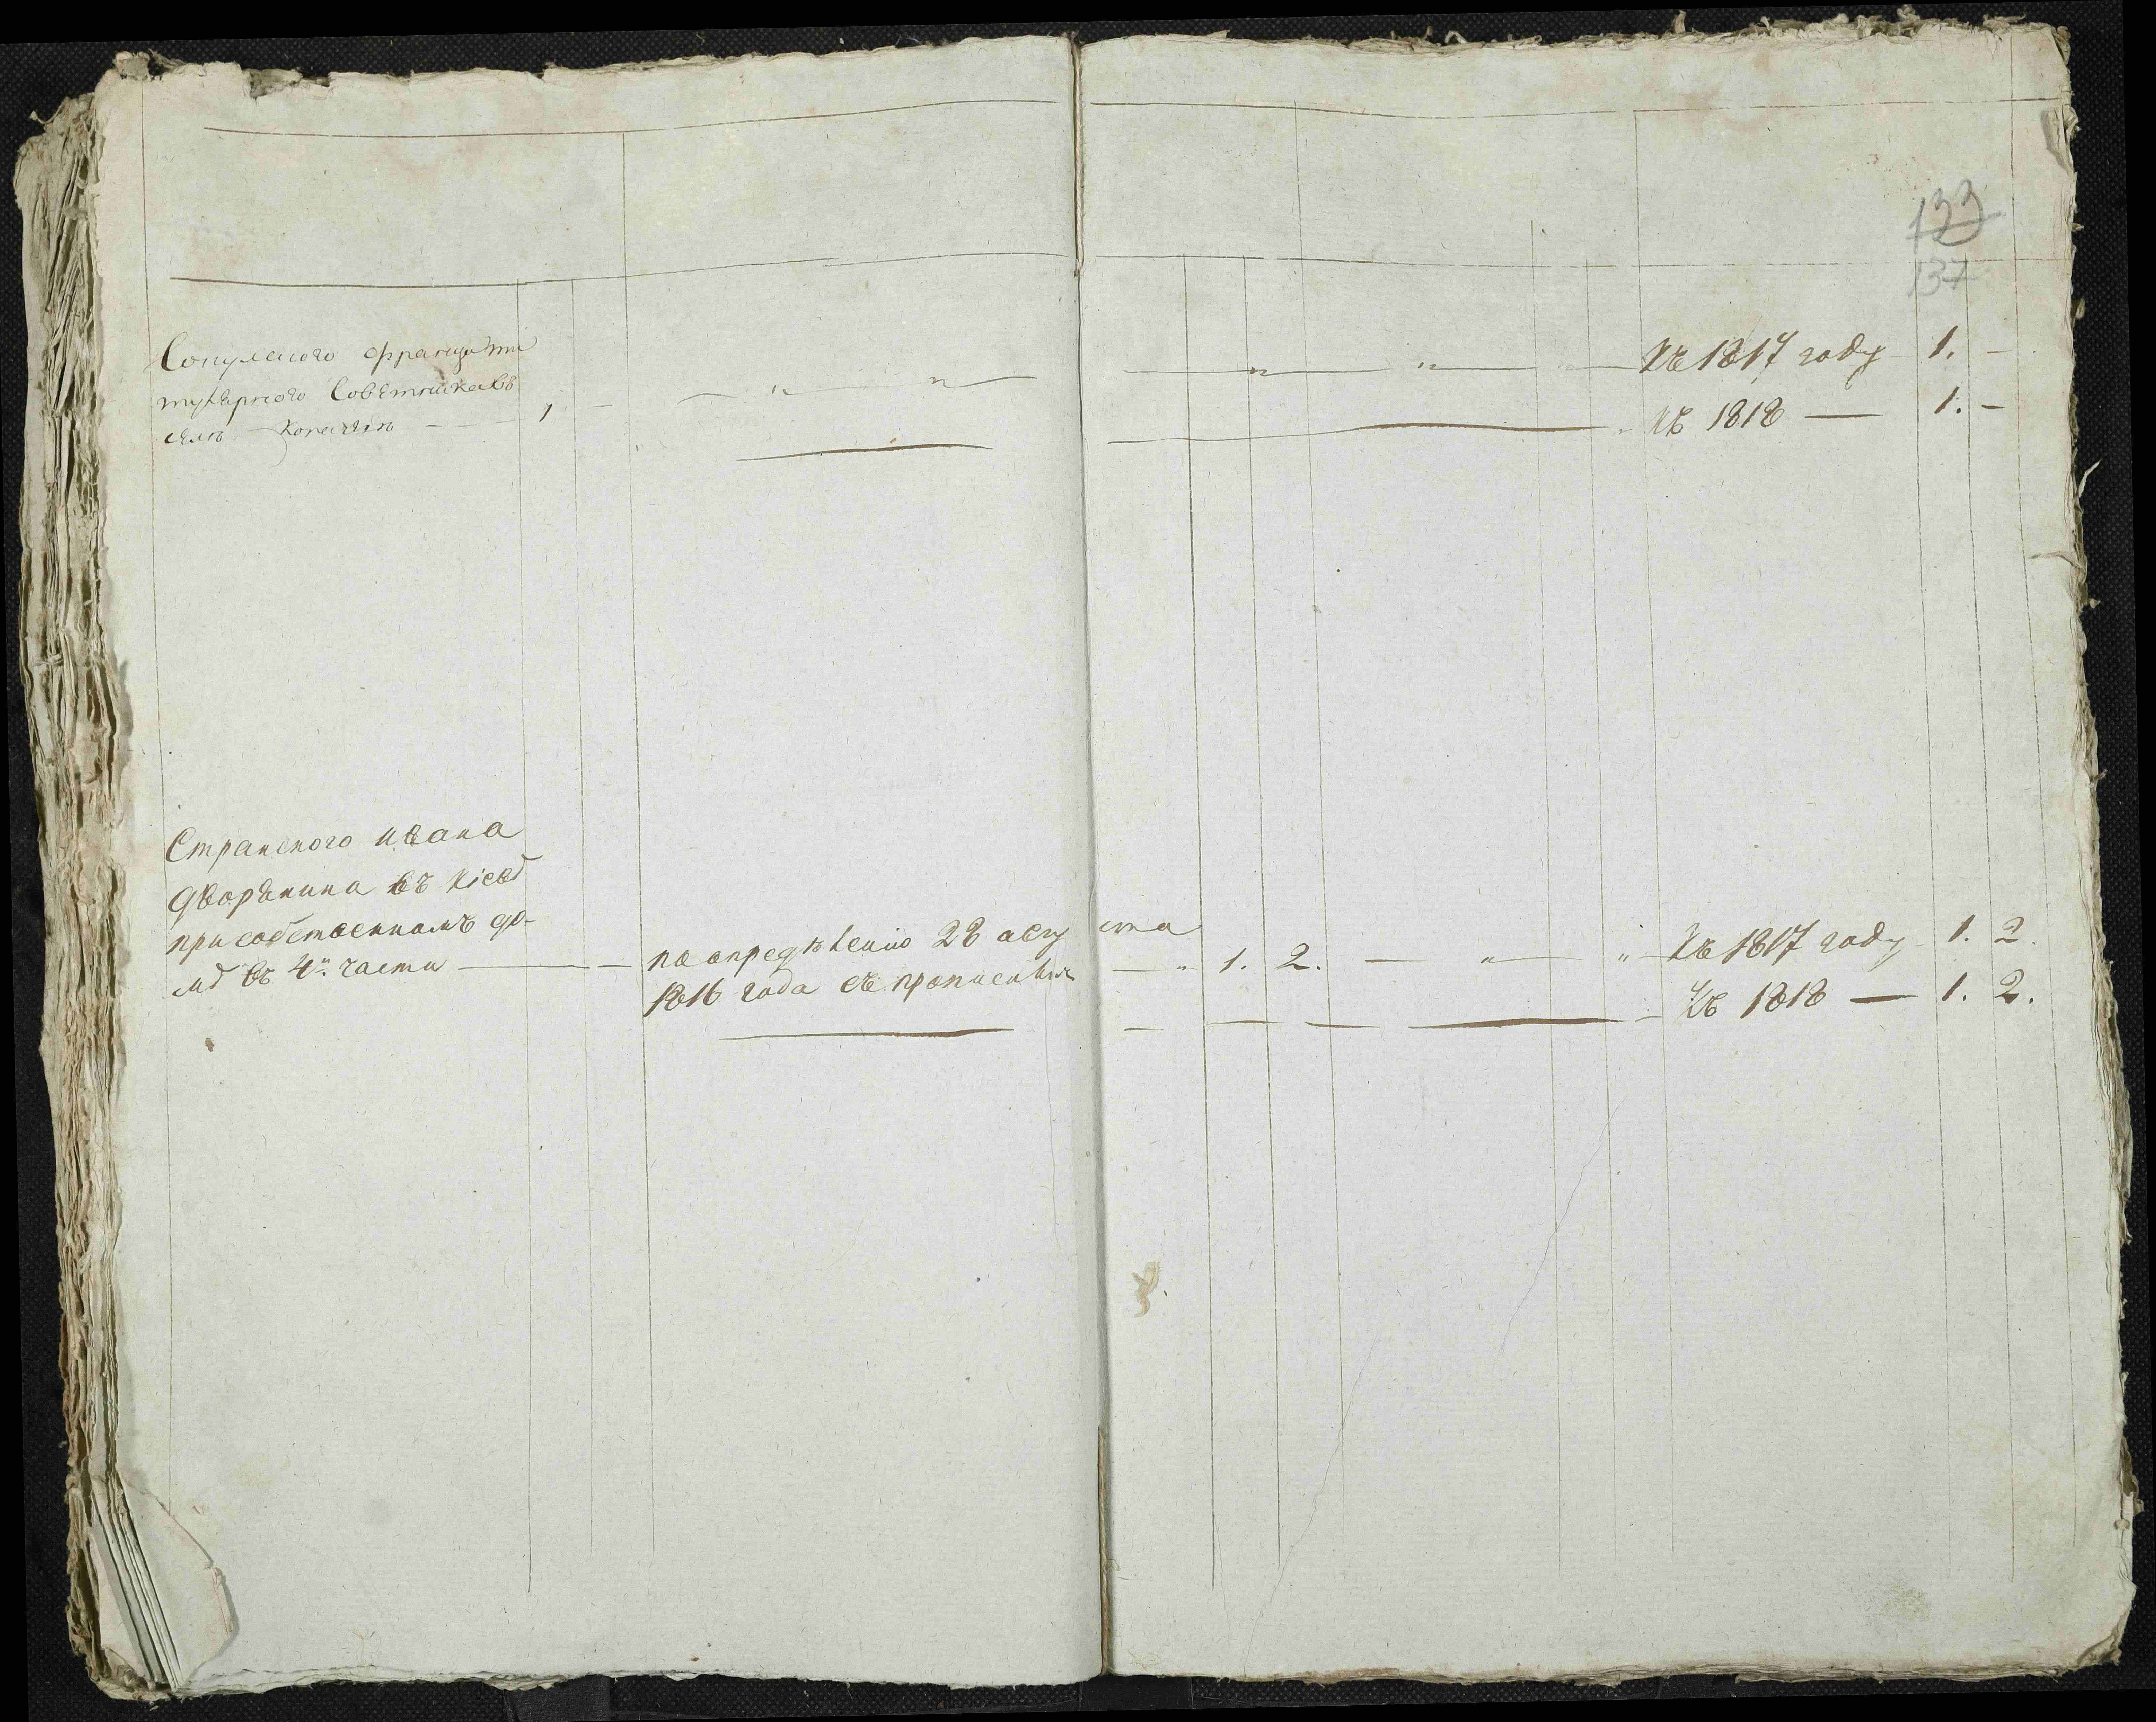 133
137
Сопулского Франца ти
тулярного Советника въ
селѣ Копачѣхъ - - - 1 -
" " " " " Къ 1817 году 1. -
Къ 1818 — 1. -
Странского ивана
дворянина въ Кіевѣ
при собственномъ до-
мѣ въ 4й. части —
по опредѣленію 28 августа
1816 года съ прописныхъ — " 1. 2. — " " Къ 1817 году 1. 2.
Къ 1818 — 1. 2.